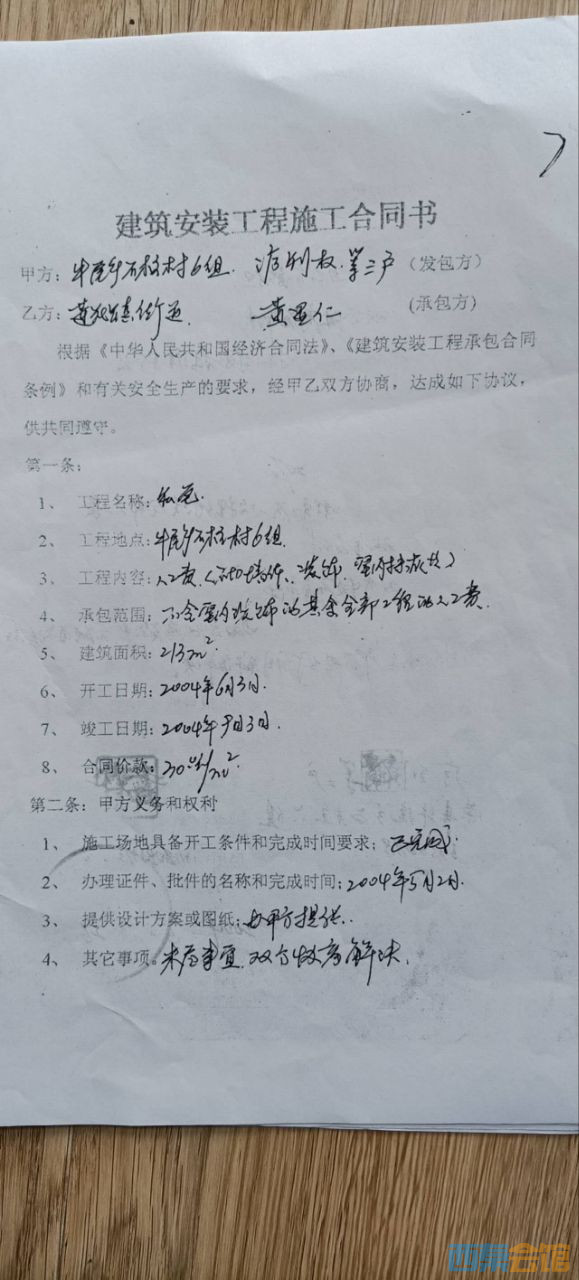 建筑安装工程施工合同书
甲方：牛尾乡石柱村6组 等三户（发包方）
乙方： 黄显仁 （承包方）
根据《中华人民共和国经济合同法》、《建筑安装工程承包合同
条例》和有关安全生产的要求，经甲乙双方协商，达成如下协议，
供共同遵守。
第一条：
1、 工程名称：
2、 工程地点：牛尾乡石柱村6组
3、 工程内容：人工费
4、 承包范围：不含室内装饰的其余全部工程的人工费
5、 建筑面积：213m²
6、 开工日期：2004年6月3日.
7、 竣工日期：2004年9月3日.
8、 合同价款：
第二条：甲方义务和权利
1、 施工场地具备开工条件和完成时间要求：已完成
2、 办理证件、批件的名称和完成时间：2004年5月2日.
3、 提供设计方案或图纸：由甲方提供.
4、 其它事项。未尽事宜.双方协商解决.
西祠会馆